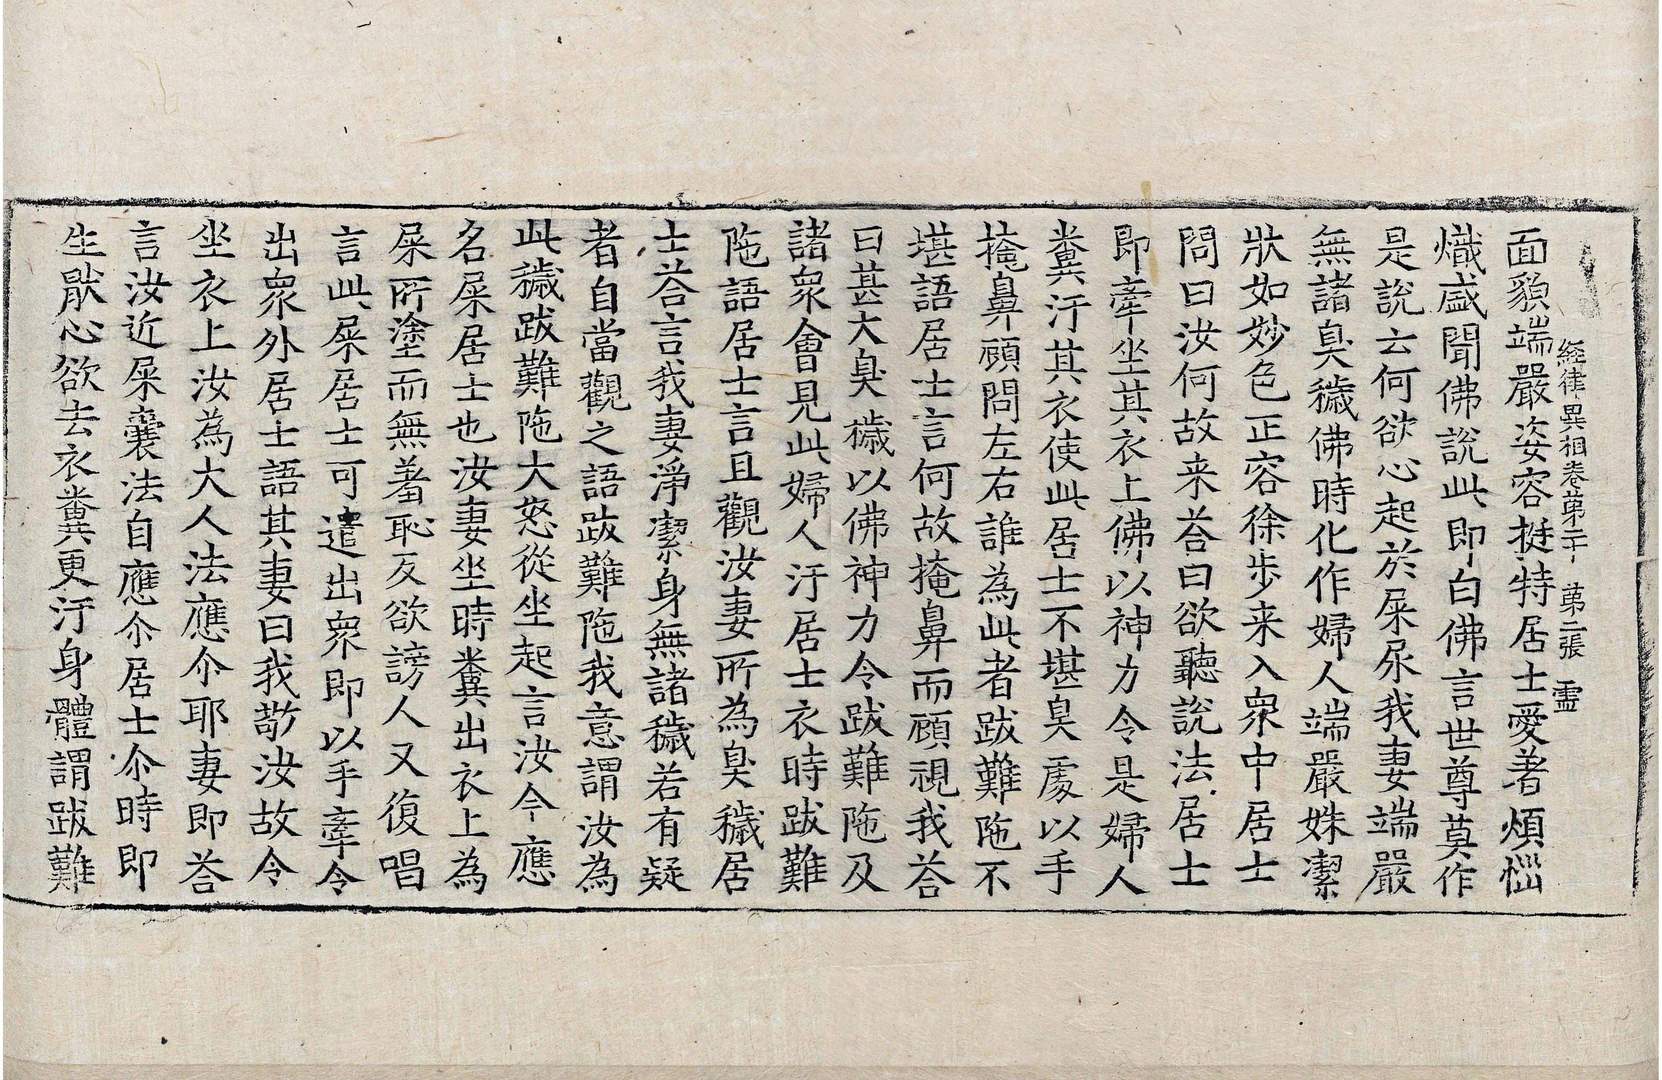 経律異相卷苐二十 苐二張 霊
面貌端嚴姿容挺特居士愛著煩惱
熾盛聞佛說此即白佛言世尊莫作
是說云何欲心起於屎尿我妻端嚴
無諸臭穢佛時化作婦人端嚴姝潔
狀如妙色正容徐步来入衆中居士
問曰汝何故来荅曰欲聽說法居士
即牽坐其衣上佛以神力令是婦人
糞汙其衣使此居士不堪臭處以手
掩鼻頋問左右誰為此者跋難陁不
堪語居士言何故掩鼻而頋視我荅
曰甚大臭穢以佛神力令跋難陁及
諸衆會見此婦人汙居士衣時跋難
陁語居士言且觀汝妻所為臭穢居
士荅言我妻淨潔身無諸穢若有疑
者自當觀之語跋難陁我意謂汝為
此穢跋難陁大怒從坐起言汝今應
名屎居士也汝妻坐時糞出衣上為
屎所塗而無羞恥反欲謗人又復唱
言此屎居士可遣出衆即以手牽令
出衆外居士語其妻曰我敬汝故令
坐衣上汝為大人法應尒耶妻即荅
言汝近屎囊法自應尒居士尒時即
生猒心欲去衣糞更汙身體謂跋難